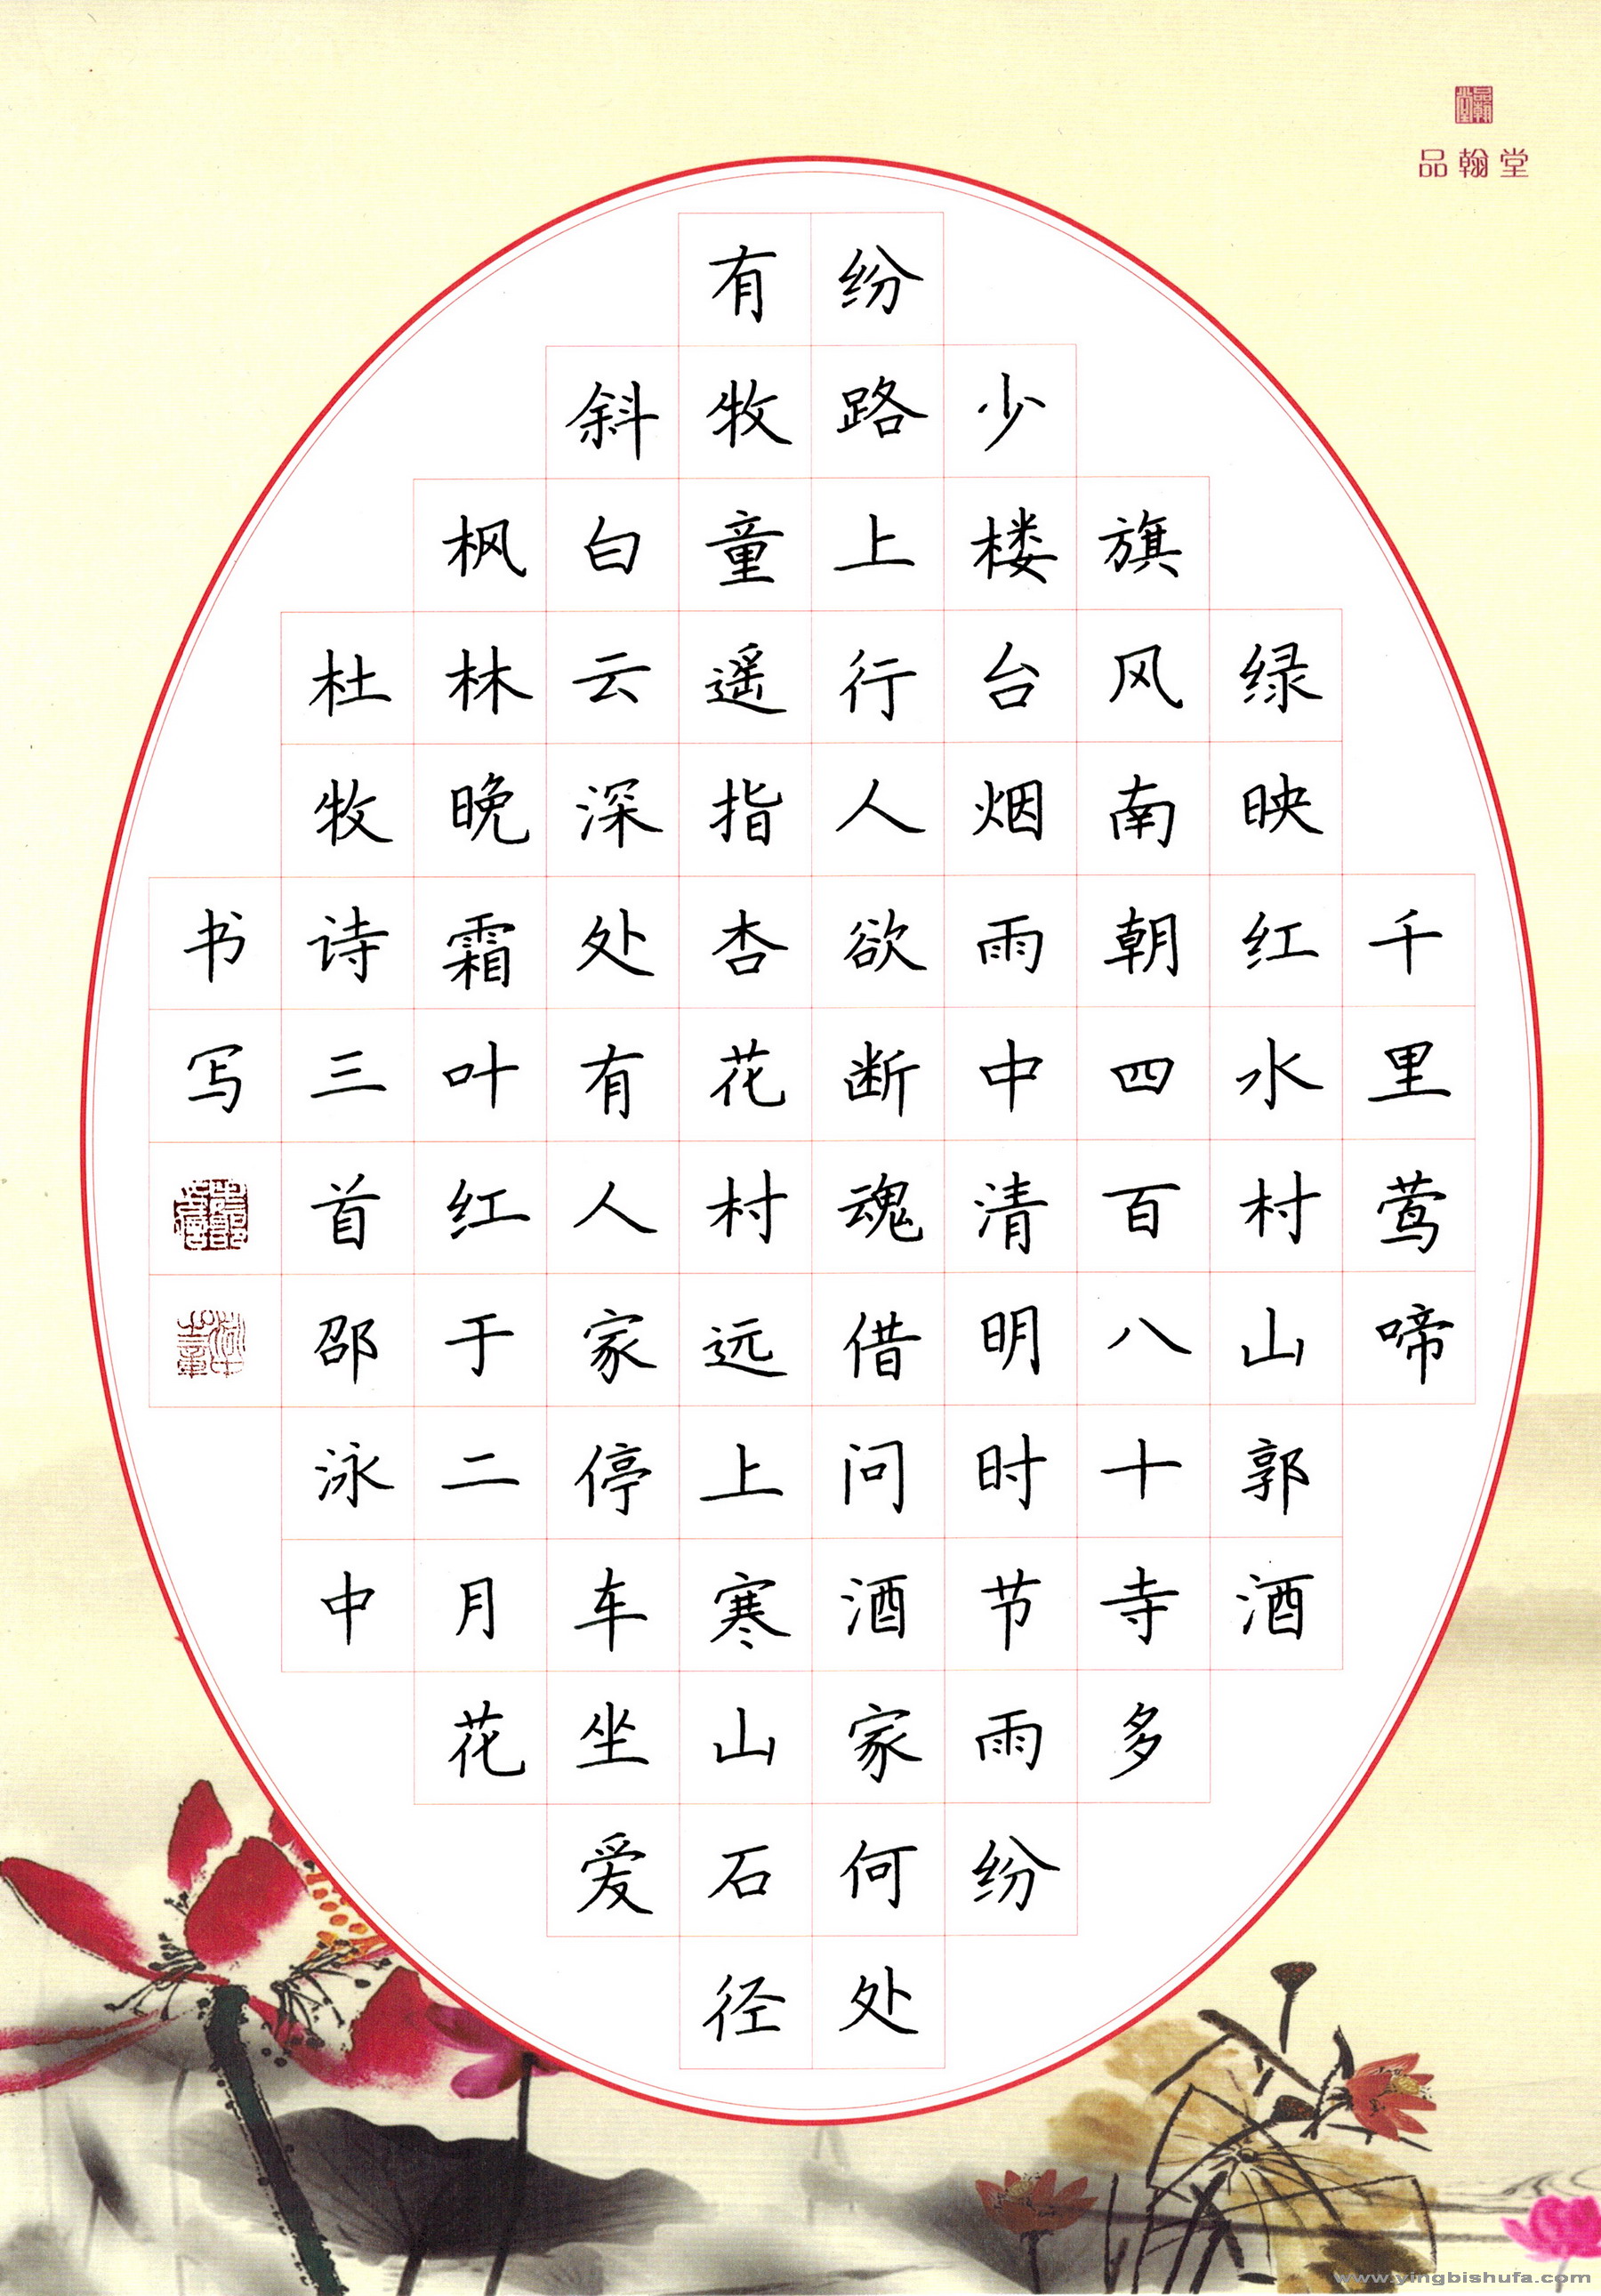 品翰堂
千里莺啼
绿映红水村山郭酒
旗风南朝四百八十寺多
少楼台烟雨中清明时节雨纷
纷路上行人欲断魂借问酒家何处
有牧童遥指杏花村远上寒山石径
斜白云深处有人家停车坐爱
枫林晚霜叶红于二月花
杜牧诗三首邵泳中
书写
www.yingbishufa.com